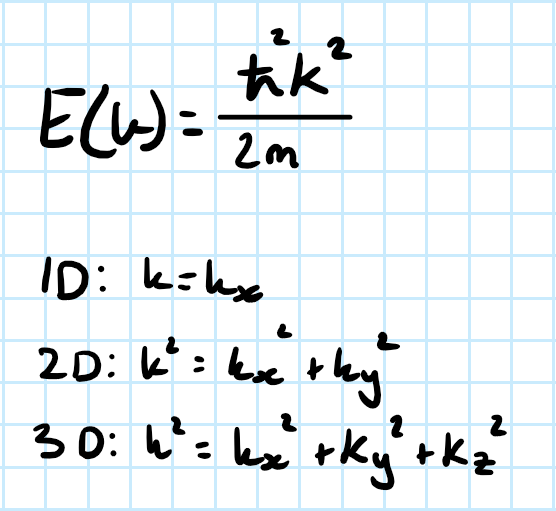 E(k) = ħ²k² / 2m
1D: k = kₓ
2D: k² = kₓ² + k_y²
3D: k² = kₓ² + k_y² + k_z²